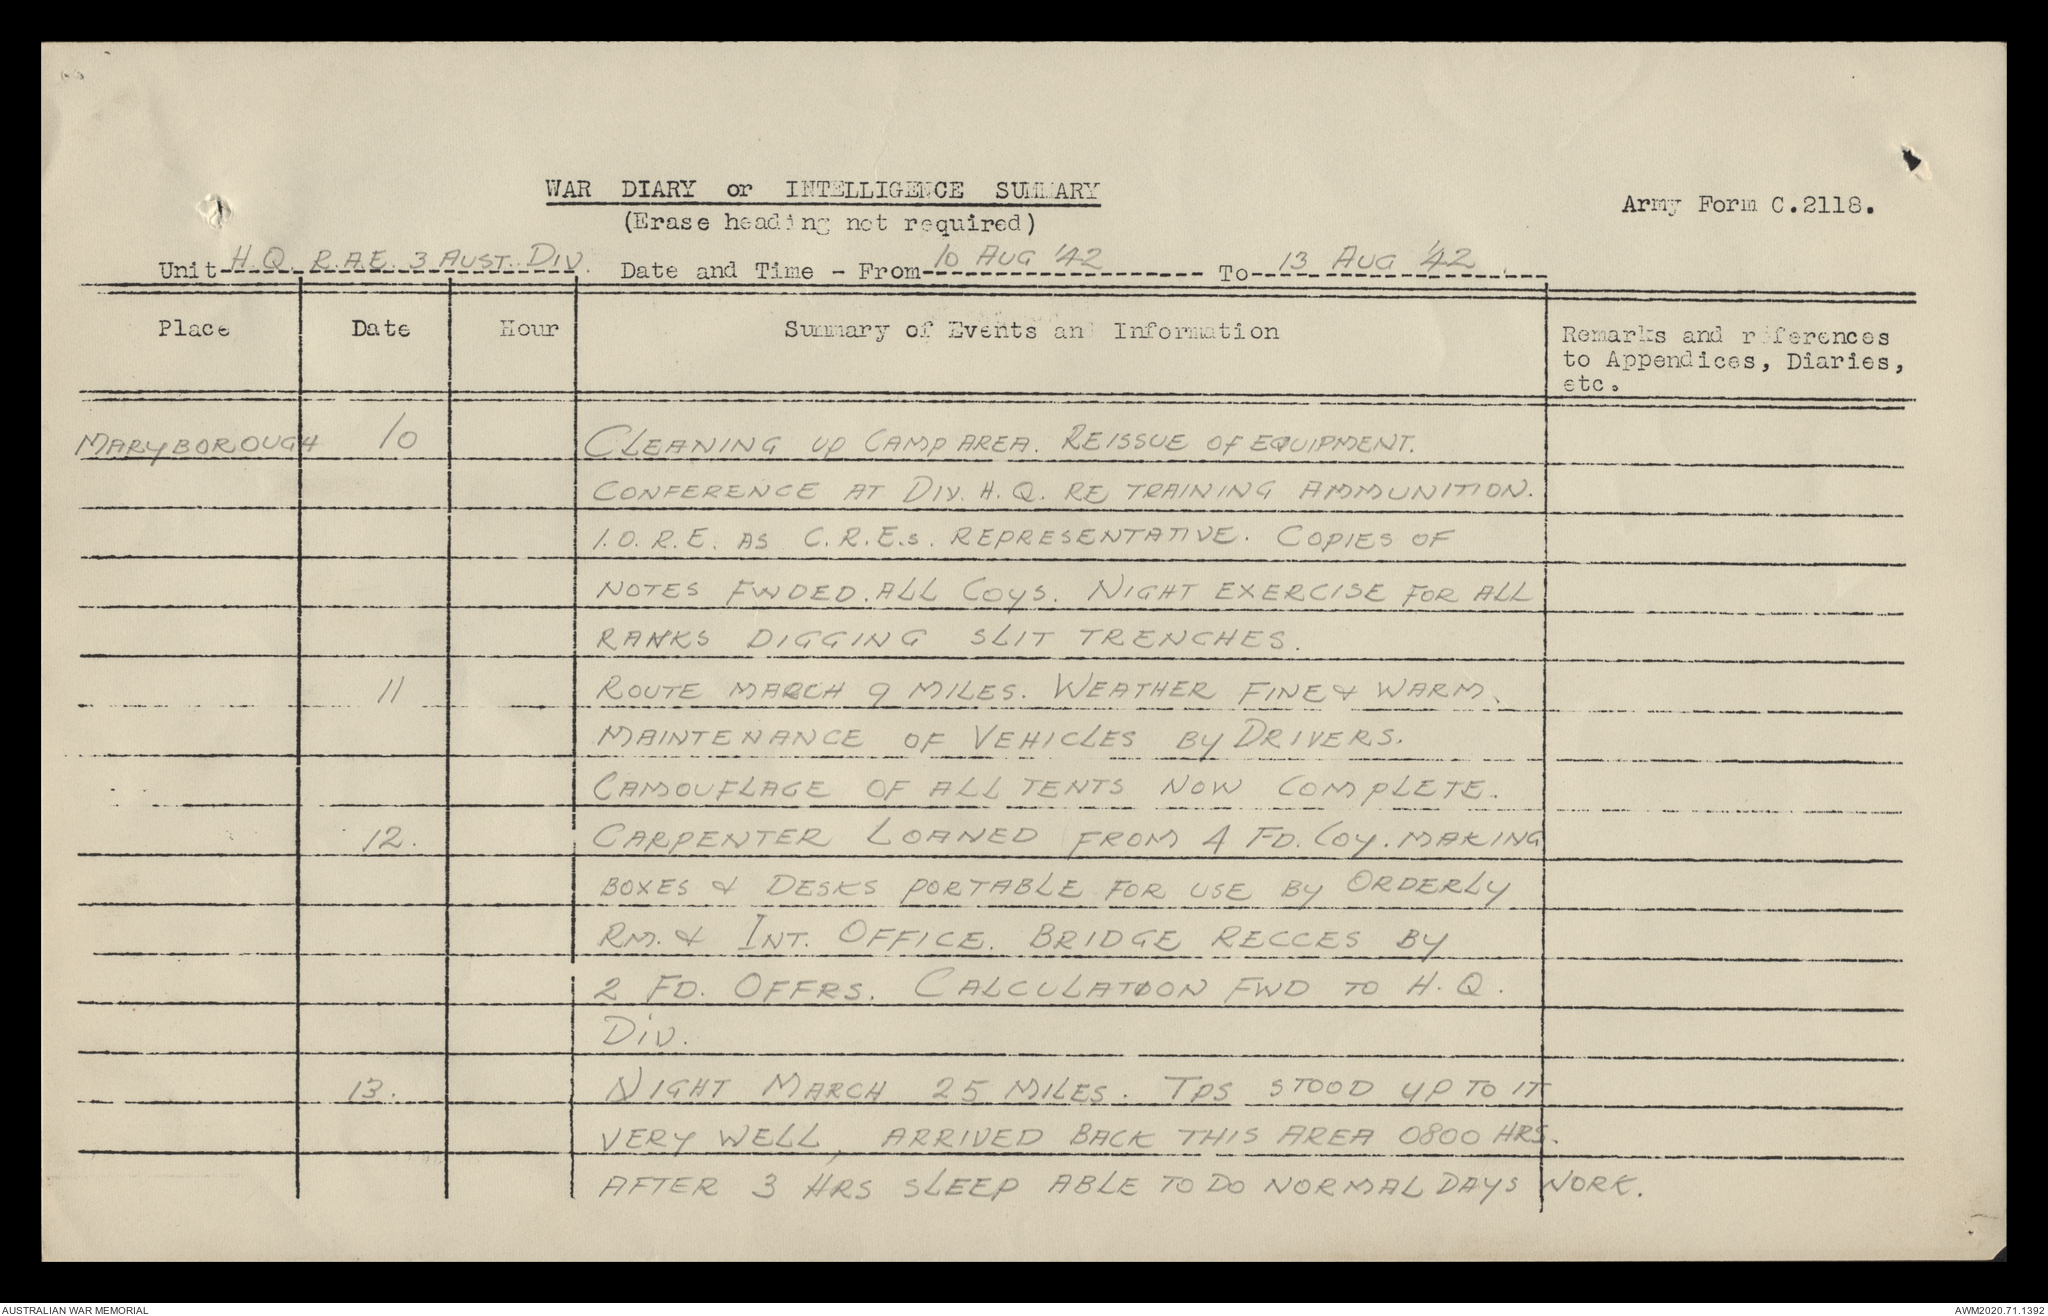 WAR DIARY or INTELLIGENCE SUMMARY
(Erase heading not required)
Army Form C.2118.
Unit H.Q. R.A.E. 3 AUST. DIV. Date and Time - From 10 AUG '42 To 13 AUG '42
Place Date Hour Summary of Events and Information Remarks and references to Appendices, Diaries, etc.
MARYBOROUGH 10 CLEANING UP CAMP AREA. REISSUE OF EQUIPMENT.
CONFERENCE AT DIV. H.Q. RE TRAINING AMMUNITION.
I.O.R.E. AS C.R.E.s. REPRESENTATIVE. COPIES OF
NOTES FWDED. ALL COYS. NIGHT EXERCISE FOR ALL
RANKS DIGGING SLIT TRENCHES.
11 ROUTE MARCH 9 MILES. WEATHER FINE & WARM.
MAINTENANCE OF VEHICLES BY DRIVERS.
CAMOUFLAGE OF ALL TENTS NOW COMPLETE.
12. CARPENTER LOANED FROM 4 FD. COY. MAKING
BOXES & DESKS PORTABLE FOR USE BY ORDERLY
RM. & INT. OFFICE. BRIDGE RECCES BY
2 FD. OFFRS. CALCULATION FWD TO H.Q.
DIV.
13. NIGHT MARCH 25 MILES. TPS STOOD UP TO IT
VERY WELL, ARRIVED BACK THIS AREA 0800 HRS.
AFTER 3 HRS SLEEP ABLE TO DO NORMAL DAYS WORK.
AUSTRALIAN WAR MEMORIAL
AWM2020.71.1392